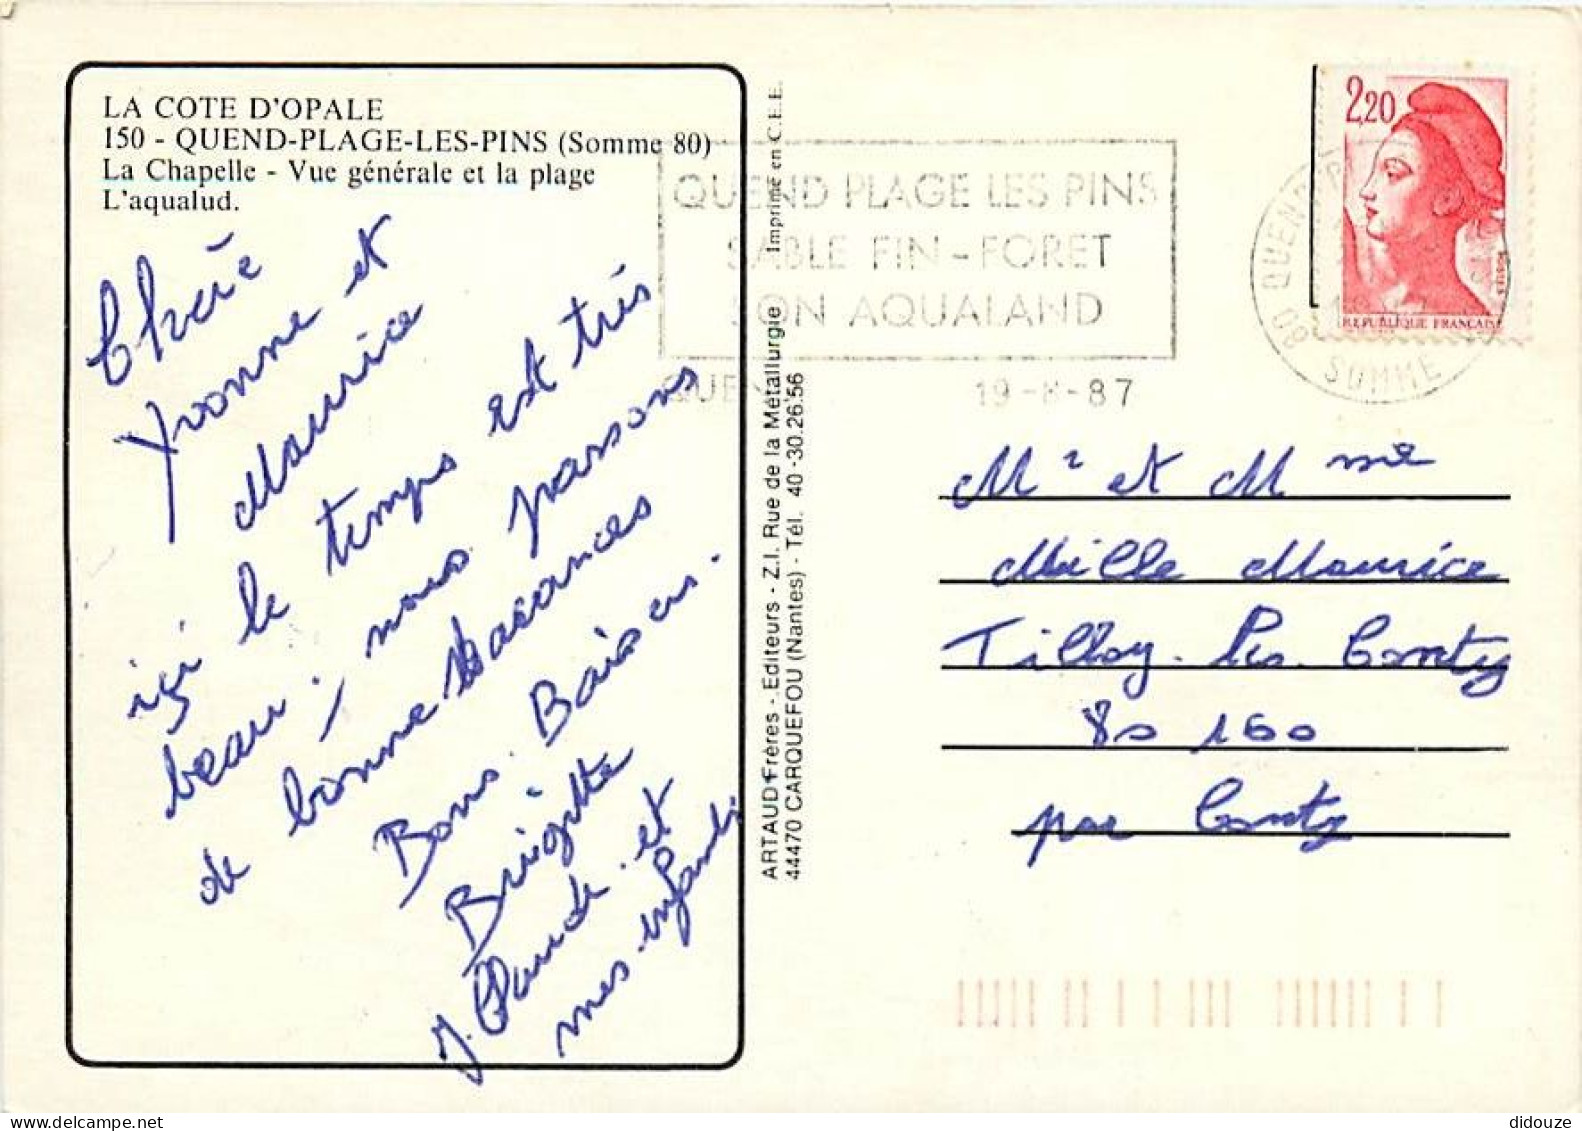 LA COTE D'OPALE
150 - QUEND-PLAGE-LES-PINS (Somme 80)
La Chapelle - Vue générale et la plage
L'aqualud.
Chère
Yvonne et
Maurice
içi le temps est très
beau, nous passons
de bonne vacances
Bons. Baisers.
Brigitte
J. Claude. et
mes. enfants.
ARTAUD Frères - Editeurs - Z.I. Rue de la Métallurgie Imprimé en C.E.E.
44470 CARQUEFOU (Nantes) - Tél. 40-30.26.56
QUEND PLAGE LES PINS
SABLE FIN - FORET
SON AQUALAND
19-8-87
2,20
REPUBLIQUE FRANCAISE
80 QUEND
SOMME
Mr et Mme
Mille Maurice
Tilloy. les. Conty
80 160
par Conty
didouze